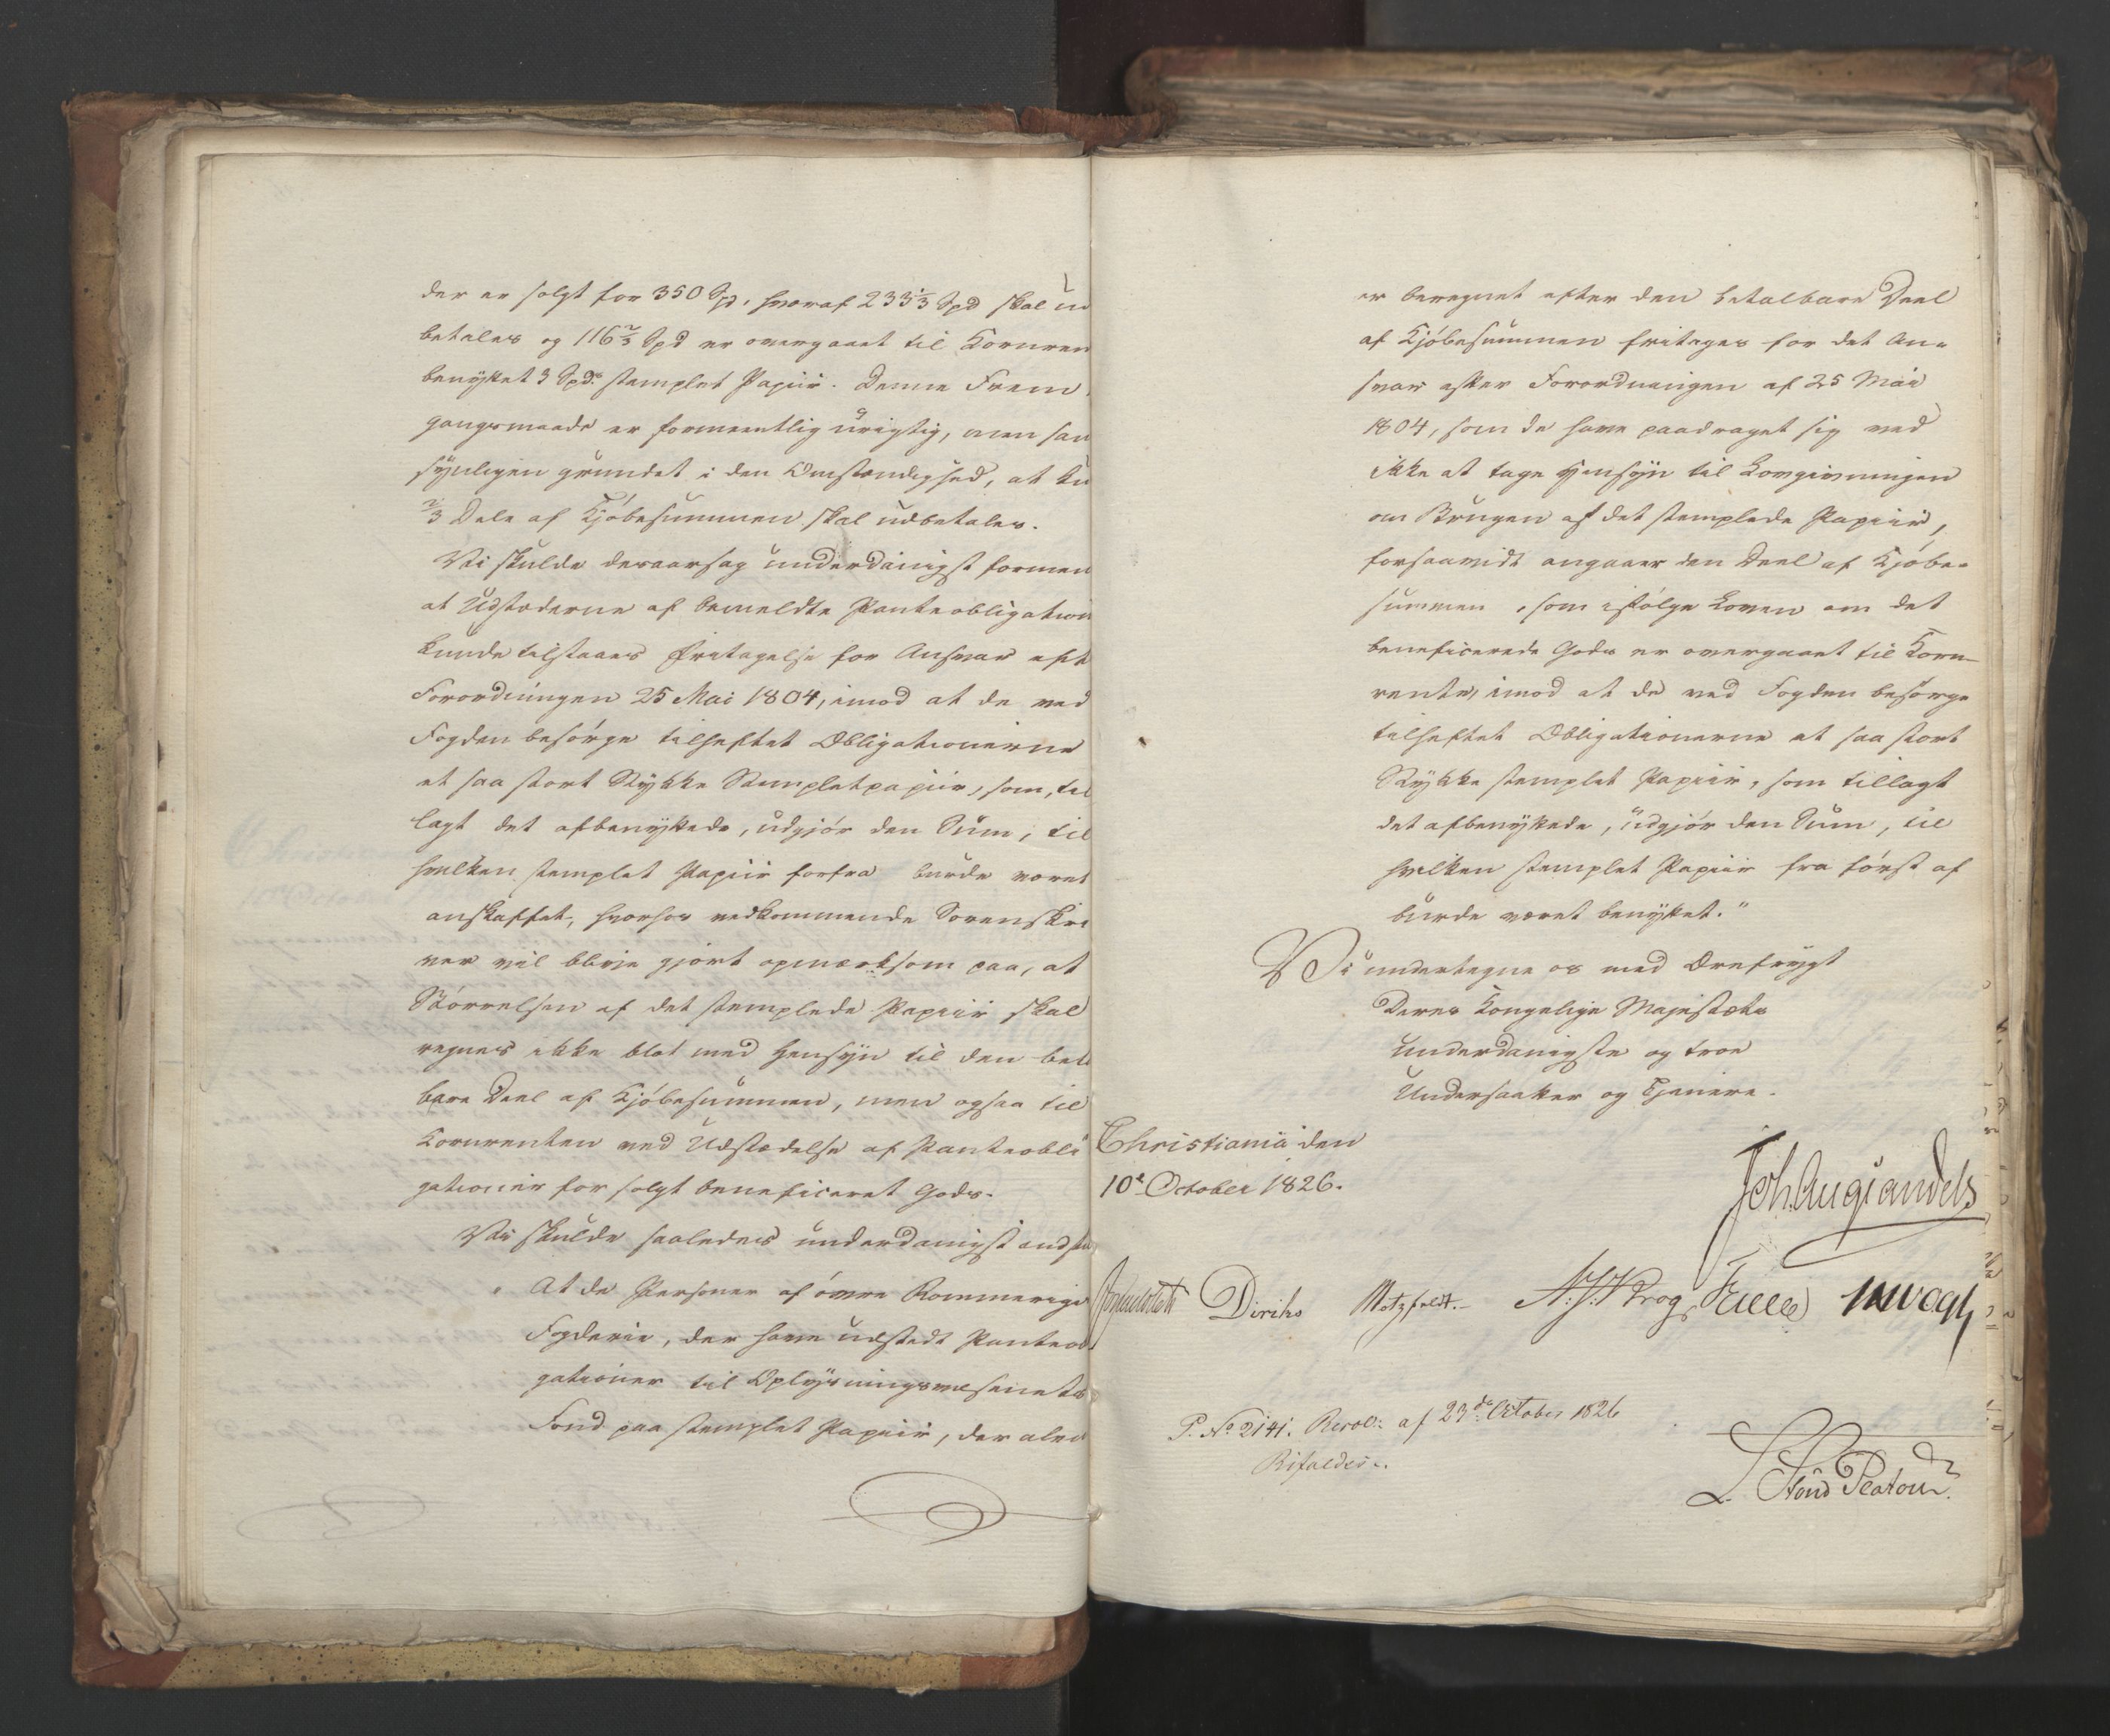 der er solgt for 350 Spd, hvoraf 233⅓ Spd skal ud
betales og 116⅔ Spd er overgaaet til Kornren
benyttet 3 Spds stemplet Papiir. Denne Frem
gangsmaade er formeentlig urigtig, men san
synligen grundet i den Omstændighed, at ku
⅔ Dele af Kjøbesummen skal udbetales.
Vi skulde desaarsag underdanigst formen
at Udstæderne af bemeldte Panteobligation
kunde tilstaaes Fritagelse for Ansvar eft
Forordningen 25 Mai 1804, imod at de ved
Fogden besørge tilheftet Obligationerne
et saa stort Stykke Stempletpapiir, som, til
lagt det afbenyttede, udgjør den Sum, til
hvilken stemplet Papiir forfra burde været
anskaffet, hvorhos vedkommende Sorenskri
ver vil blive gjort opmærksom paa, at
Størrelsen af det stemplede Papiir skal
regnes ikke blot med Hensyn til den beta
bare Deel af Kjøbesummen, men ogsaa til
Kornrenten ved Udstædelse af Panteobli
gationer for solgt beneficeret Gods.
Vi skulde saaledes underdanigst indstil
" At de Personer af øvre Rommerige
Fogderie, der have udstedt Panteob
gationer til Oplysningsvæsenets
Fond paa stemplet Papiir, der alen
er beregnet efter den betalbare Deel
af Kjøbesummen fritages for det An-
svar efter Forordningen af 25 Mai
1804, som de have paadraget sig ved
ikke at tage Hensyn til Lovgivningen
om Brugen af det stemplede Papiir,
forsaavidt angaaer den Deel af Kjøbe-
summen, som ifølge Loven om det
beneficerede Gods er overgaaet til Korn-
rente, imod at de ved Fogden besørge
tilheftet Obligationerne et saa stort
Stykke stemplet Papiir, som tillagt
det afbenyttede, udgjør den Sum, til
hvilken stemplet Papiir fra først af
burde været benyttet."
Vi undertegne os med Ærefrygt
Deres Kongelige Majestæts
underdanigste og troe
Undersaatter og Tjenere.
Christiania den
10e October 1826.
Joh. Aug Sandels
Diriks Motzfeldt. A. S. Krog, Fasting
P. No 2141. Resol: af 23de October 1826
Bifaldes.